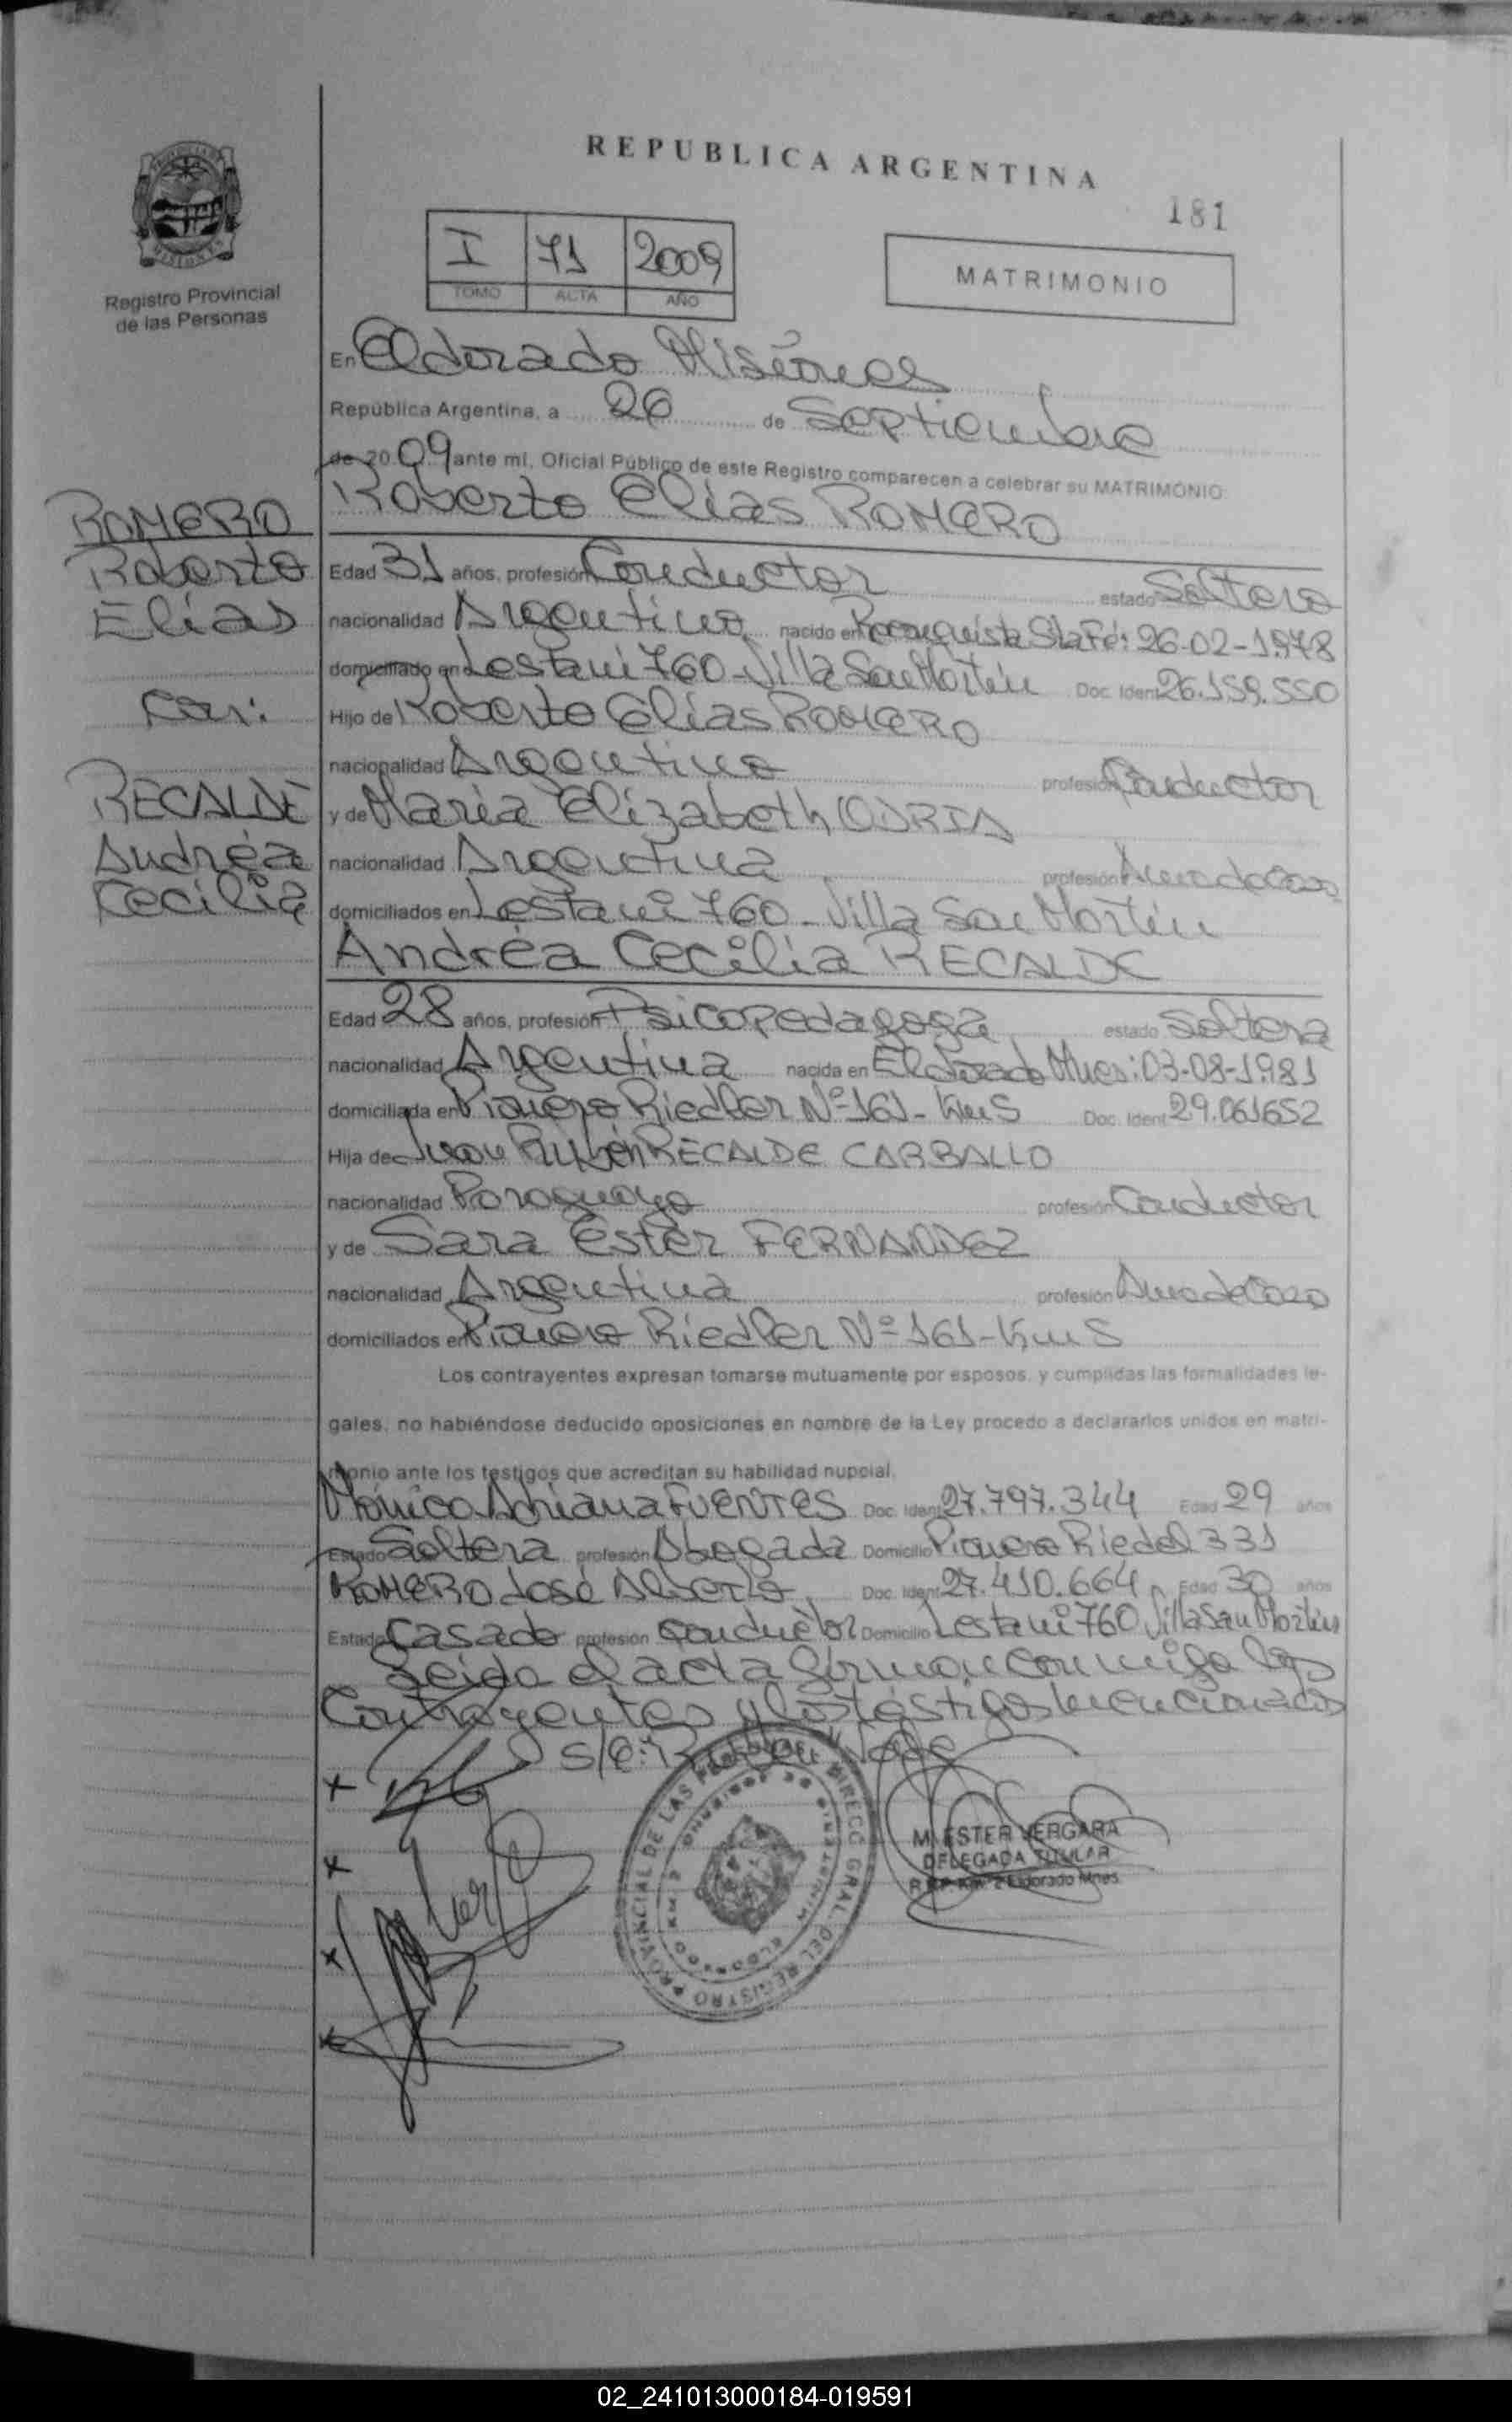 REPUBLICA ARGENTINA
181
I 71 2009
TOMO ACTA AÑO
MATRIMONIO
Registro Provincial
de las Personas
En Eldorado Misiones
República Argentina, a 26 de Septiembre
de 2009 ante mi, Oficial Público de este Registro comparecen a celebrar su MATRIMONIO:
Roberto Elias ROMERO
ROMERO
Roberto
Elias
Con:
RECALDE
Andréa
Cecilia
Edad 31 años, profesión Conductor estado Soltero
nacionalidad Argentino nacido en Reconquista Sta Fé: 26-02-1978
domiciliado en Lestani 760 - Villa San Martín Doc. Ident. 26.159.550
Hijo de Roberto Elias ROMERO
nacionalidad Argentino profesión Conductor
y de Maria Elizabeth
nacionalidad Argentina profesión Ama de Casa
domiciliados en Lestani 760 - Villa San Martín
Andréa Cecilia RECALDE
Edad 28 años, profesión Psicopedagoga estado Soltera
nacionalidad Argentina nacida en Eldorado Mnes: 03-08-1981
domiciliada en Pionero Riedler Nº 161 - Km 5 Doc. Ident. 29.061652
Hija de Juan Rubén RECALDE CARBALLO
nacionalidad Paraguayo profesión Conductor
y de Sara Ester FERNANDEZ
nacionalidad Argentina profesión Ama de Casa
domiciliados en Pionero Riedler Nº 161 - Km 5
Los contrayentes expresan tomarse mutuamente por esposos, y cumplidas las formalidades le-
gales, no habiéndose deducido oposiciones en nombre de la Ley procedo a declararlos unidos en matri-
monio ante los testigos que acreditan su habilidad nupcial.
Mónica Adriana FUENTES Doc. Ident. 27.797.344 Edad 29 años
Estado Soltera profesión Abogada Domicilio Pionero Riedel 331
ROMERO José Alberto Doc. Ident. 27.410.664 Edad 30 años
Estado Casado profesión Conductor Domicilio Lestani 760 Villa San Martín
Leida el acta firman conmigo los
Contrayentes y los testigos mencionados
S/R: Rubén Vale
DIRECC. GRAL. DEL REGISTRO PROVINCIAL DE LAS PERSONAS
ELDORADO KM 2
M. ESTER VERGARA
DELEGADA TITULAR
R.P.P. Km. 2 Eldorado Mnes.
02_241013000184-019591